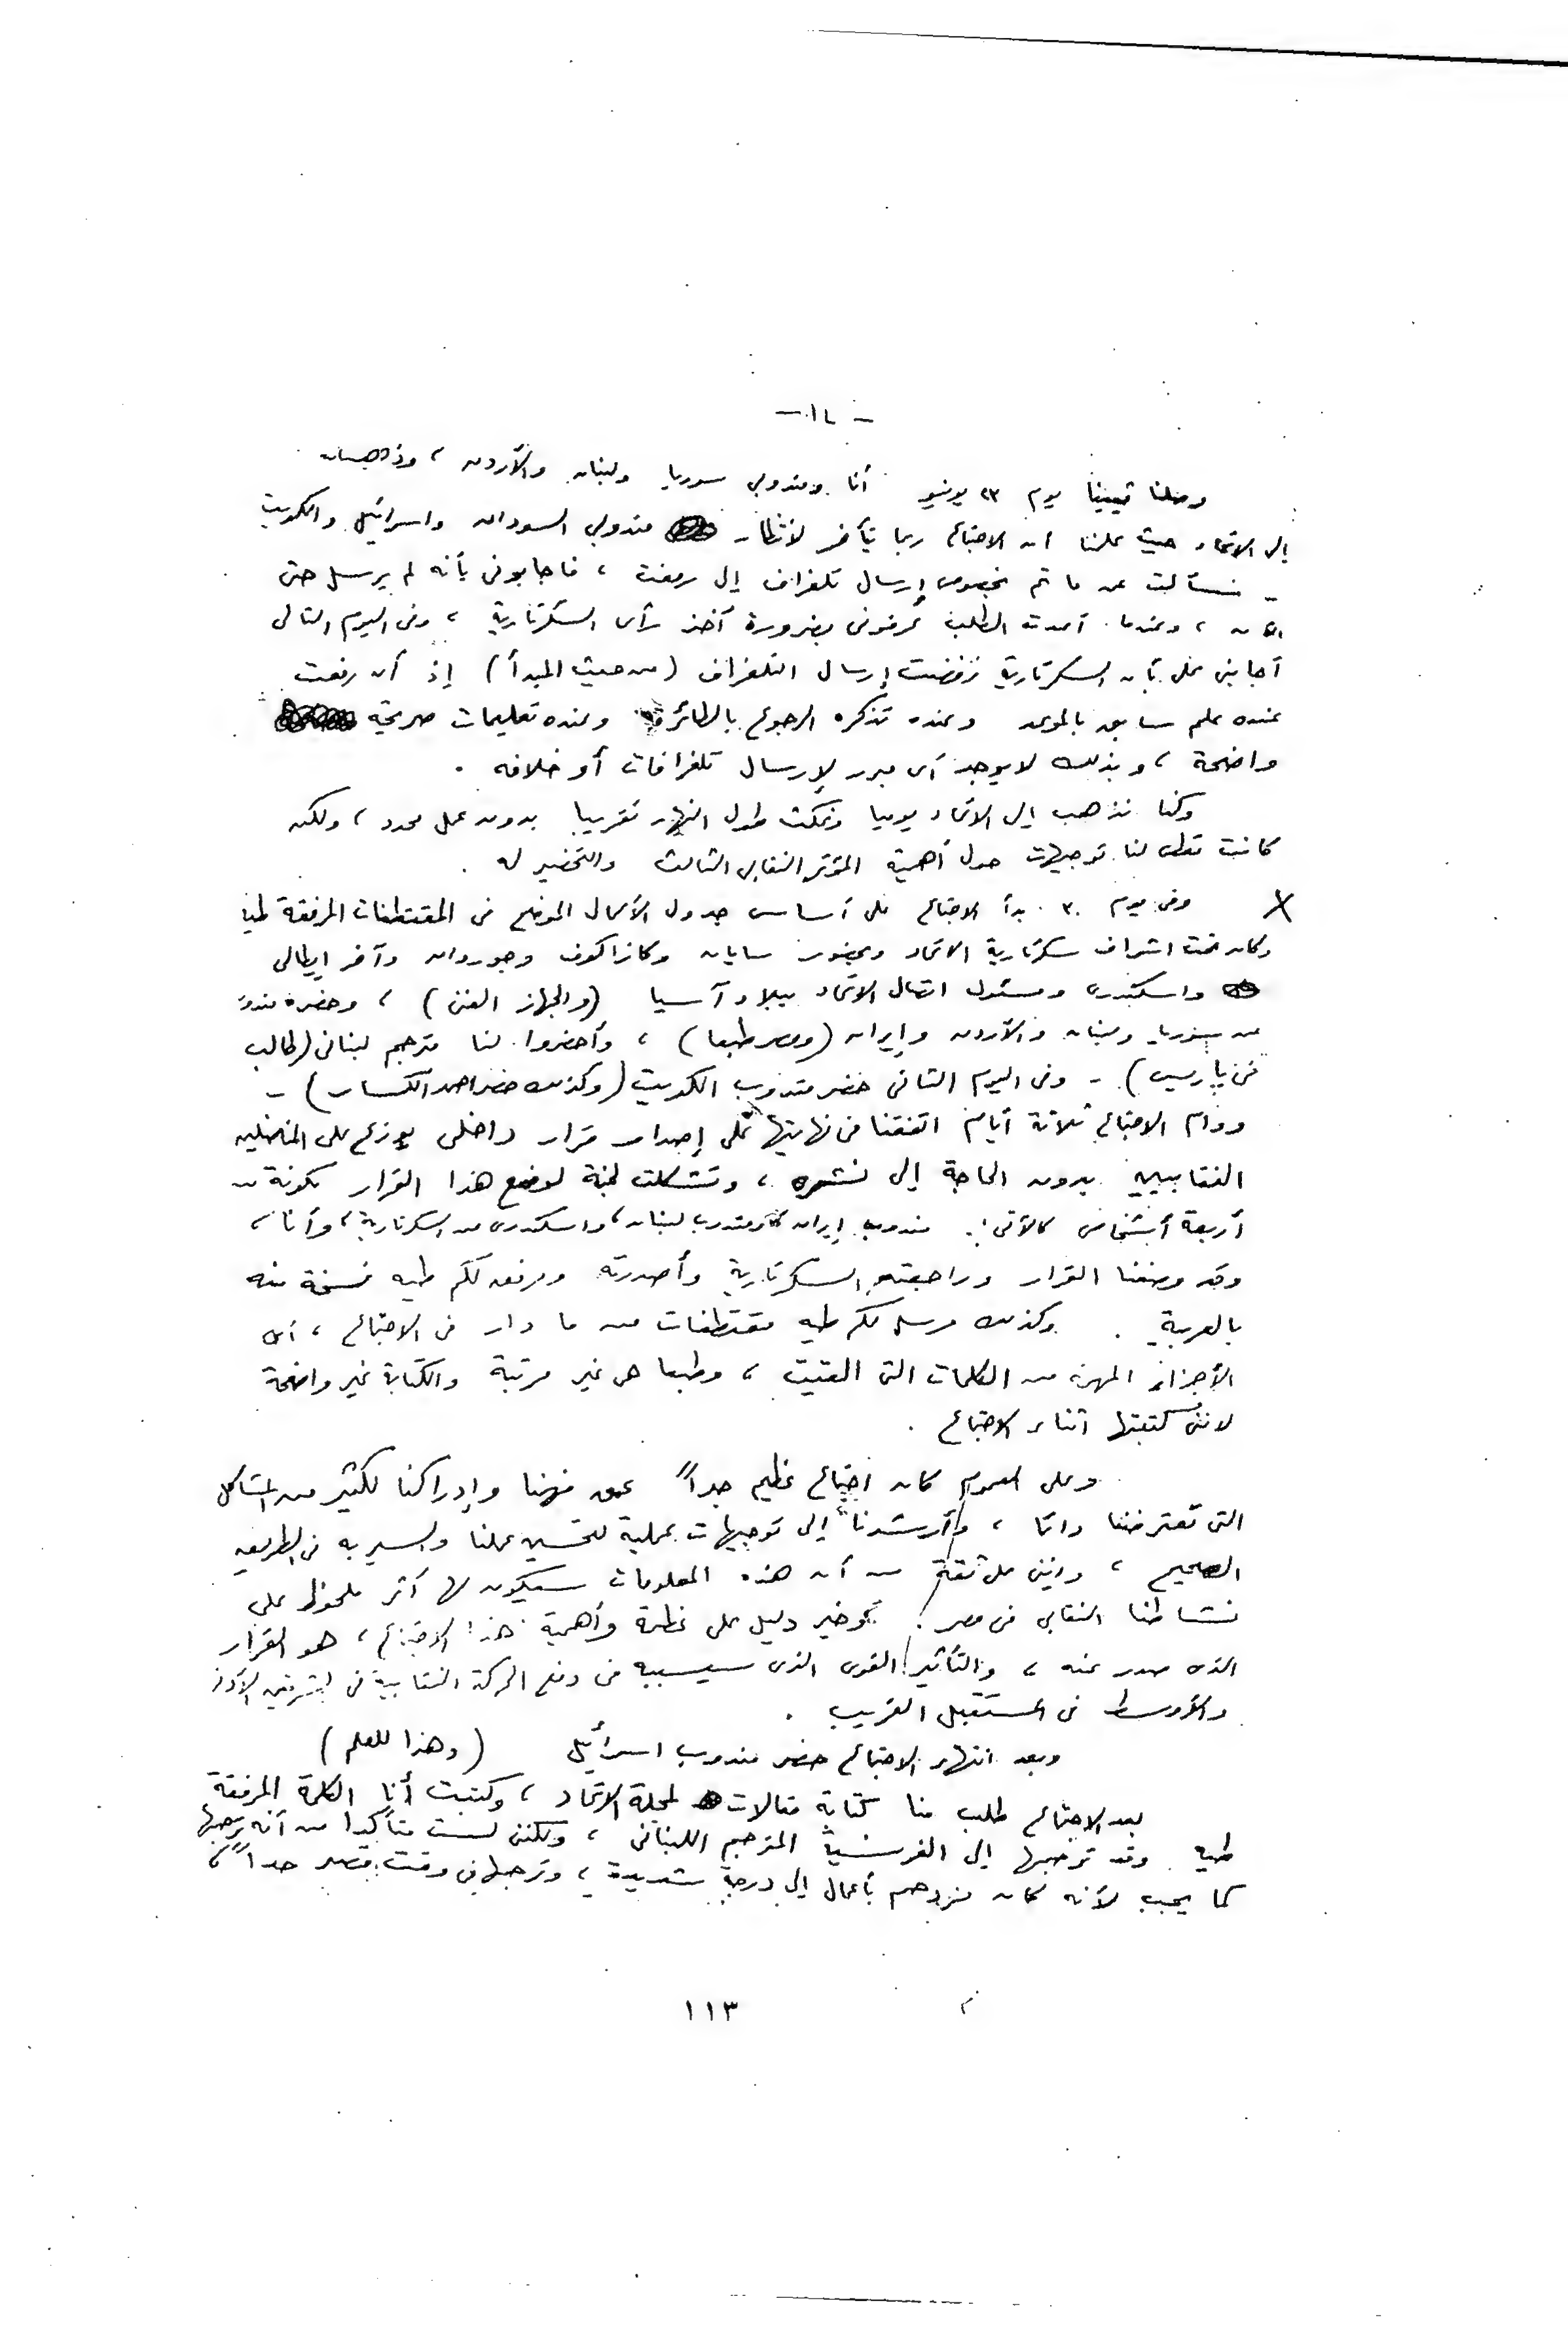 وصلنا فيينا يوم ٢٣ يونيو أنا ومندوبى سوريا ولبنان والأردن ، وذهبنا
إلى الاتحاد حيث علمنا أن الاجتماع ربما يتأخر لانتظار مندوبى السودان واسرائيل والكويت
ـ فسألت عن ما تم بخصوص إرسال تلغراف إلى رفعت ، فأجابونى بأنه لم يرسل حتى
الآن ، وعندما أعدت الطلب عرفونى بضرورة أخذ رأى السكرتارية ، وفى اليوم التالى
أجابنى على بأن السكرتارية رفضت إرسال التلغراف (من حيث المبدأ) إذ أن رفعت
عنده علم سابق بالموعد وعنده تذكره الرجوع بالطائرة وعنده تعليمات صريحة
واضحة ، وبذلك لا يوجد أى مبرر لإرسال تلغرافات أو خلافه .
وكنا نذهب إلى الاتحاد يوميا ونمكث طول النهار تقريبا بدون عمل محدد ، ولكن
كانت تعطى لنا توجيهات حول أهمية المؤتمر النقابى الثالث والتحضير له .
وفى يوم ٣٠ بدأ الاجتماع على أساس جدول الأعمال الموضح فى المقتطفات المرفقة طيا
وكان تحت اشراف سكرتارية الاتحاد وبحضور سايان وكازاكوف وجوردان وآخر ايطالى
واسكندرى ومسئول اتصال الاتحاد ببلاد آسيا (والجهاز الفنى) ، وحضره مندوب
من سوريا ولبنان والأردن وإيران (ومصر طبعا) ، وأحضروا لنا مترجم لبنانى (طالب
فى باريس) ـ وفى اليوم الثانى حضر مندوب الكويت (وكذلك حضر احمد الكسار) ـ
ودام الاجتماع ثلاثة أيام اتفقنا فى نهايتها على إصدار قرار داخلى يوزع على المناضلين
النقابيين بدون الحاجة إلى نشره ، وتشكلت لجنة لوضع هذا القرار مكونة من
أربعة أشخاص كالآتى : مندوب إيران ، ومندوب لبنان ، واسكندرى من السكرتارية ، وأنا ،
وقد وضعنا القرار وراجعته السكرتارية وأصدرته ومرفق لكم طيه نسخة منه
بالعربية . وكذلك مرسل لكم طيه مقتطفات من ما دار فى الاجتماع ، أى
الأجزاء المهمة من الكلمات التى القيت ، وطبعا هى غير مرتبة والكتابة غير واضحة
لاننى كتبتها اثناء الاجتماع .
وعلى العموم كان اجتماع عظيم جداً عمق فهمنا وإدراكنا لكثير من المشاكل
التى تعترضنا دائما ، وأرشدنا إلى توجيهات عملية لتحسين عملنا والسير به فى الطريق
الصحيح ، وإننى على ثقة من أن هذه المعلومات سيكون لها أثر ملحوظ على
نشاطنا النقابى فى مصر . وخير دليل على عظمة وأهمية هذا الاجتماع ، هو القرار
الذى صدر عنه ، والتأثير القوى الذى سيسببه فى دفع الحركة النقابية فى الشرقين الأدنى
والأوسط فى المستقبل القريب .
وبعد انتهاء الاجتماع حضر مندوب اسرائيل (وهذا للعلم)
بعد الاجتماع طلب منا كتابة مقالات لمجلة الاتحاد ، وكتبت أنا الكلمة المرفقة
طيه وقد ترجمها إلى الفرنسية المترجم اللبنانى ، ولكننى لست متأكدا من أنه ترجمها
كما يجب لأنه كان مزدحم بأعمال إلى درجة شديدة ، وترجمها فى وقت قصير جداً ،
١١٣